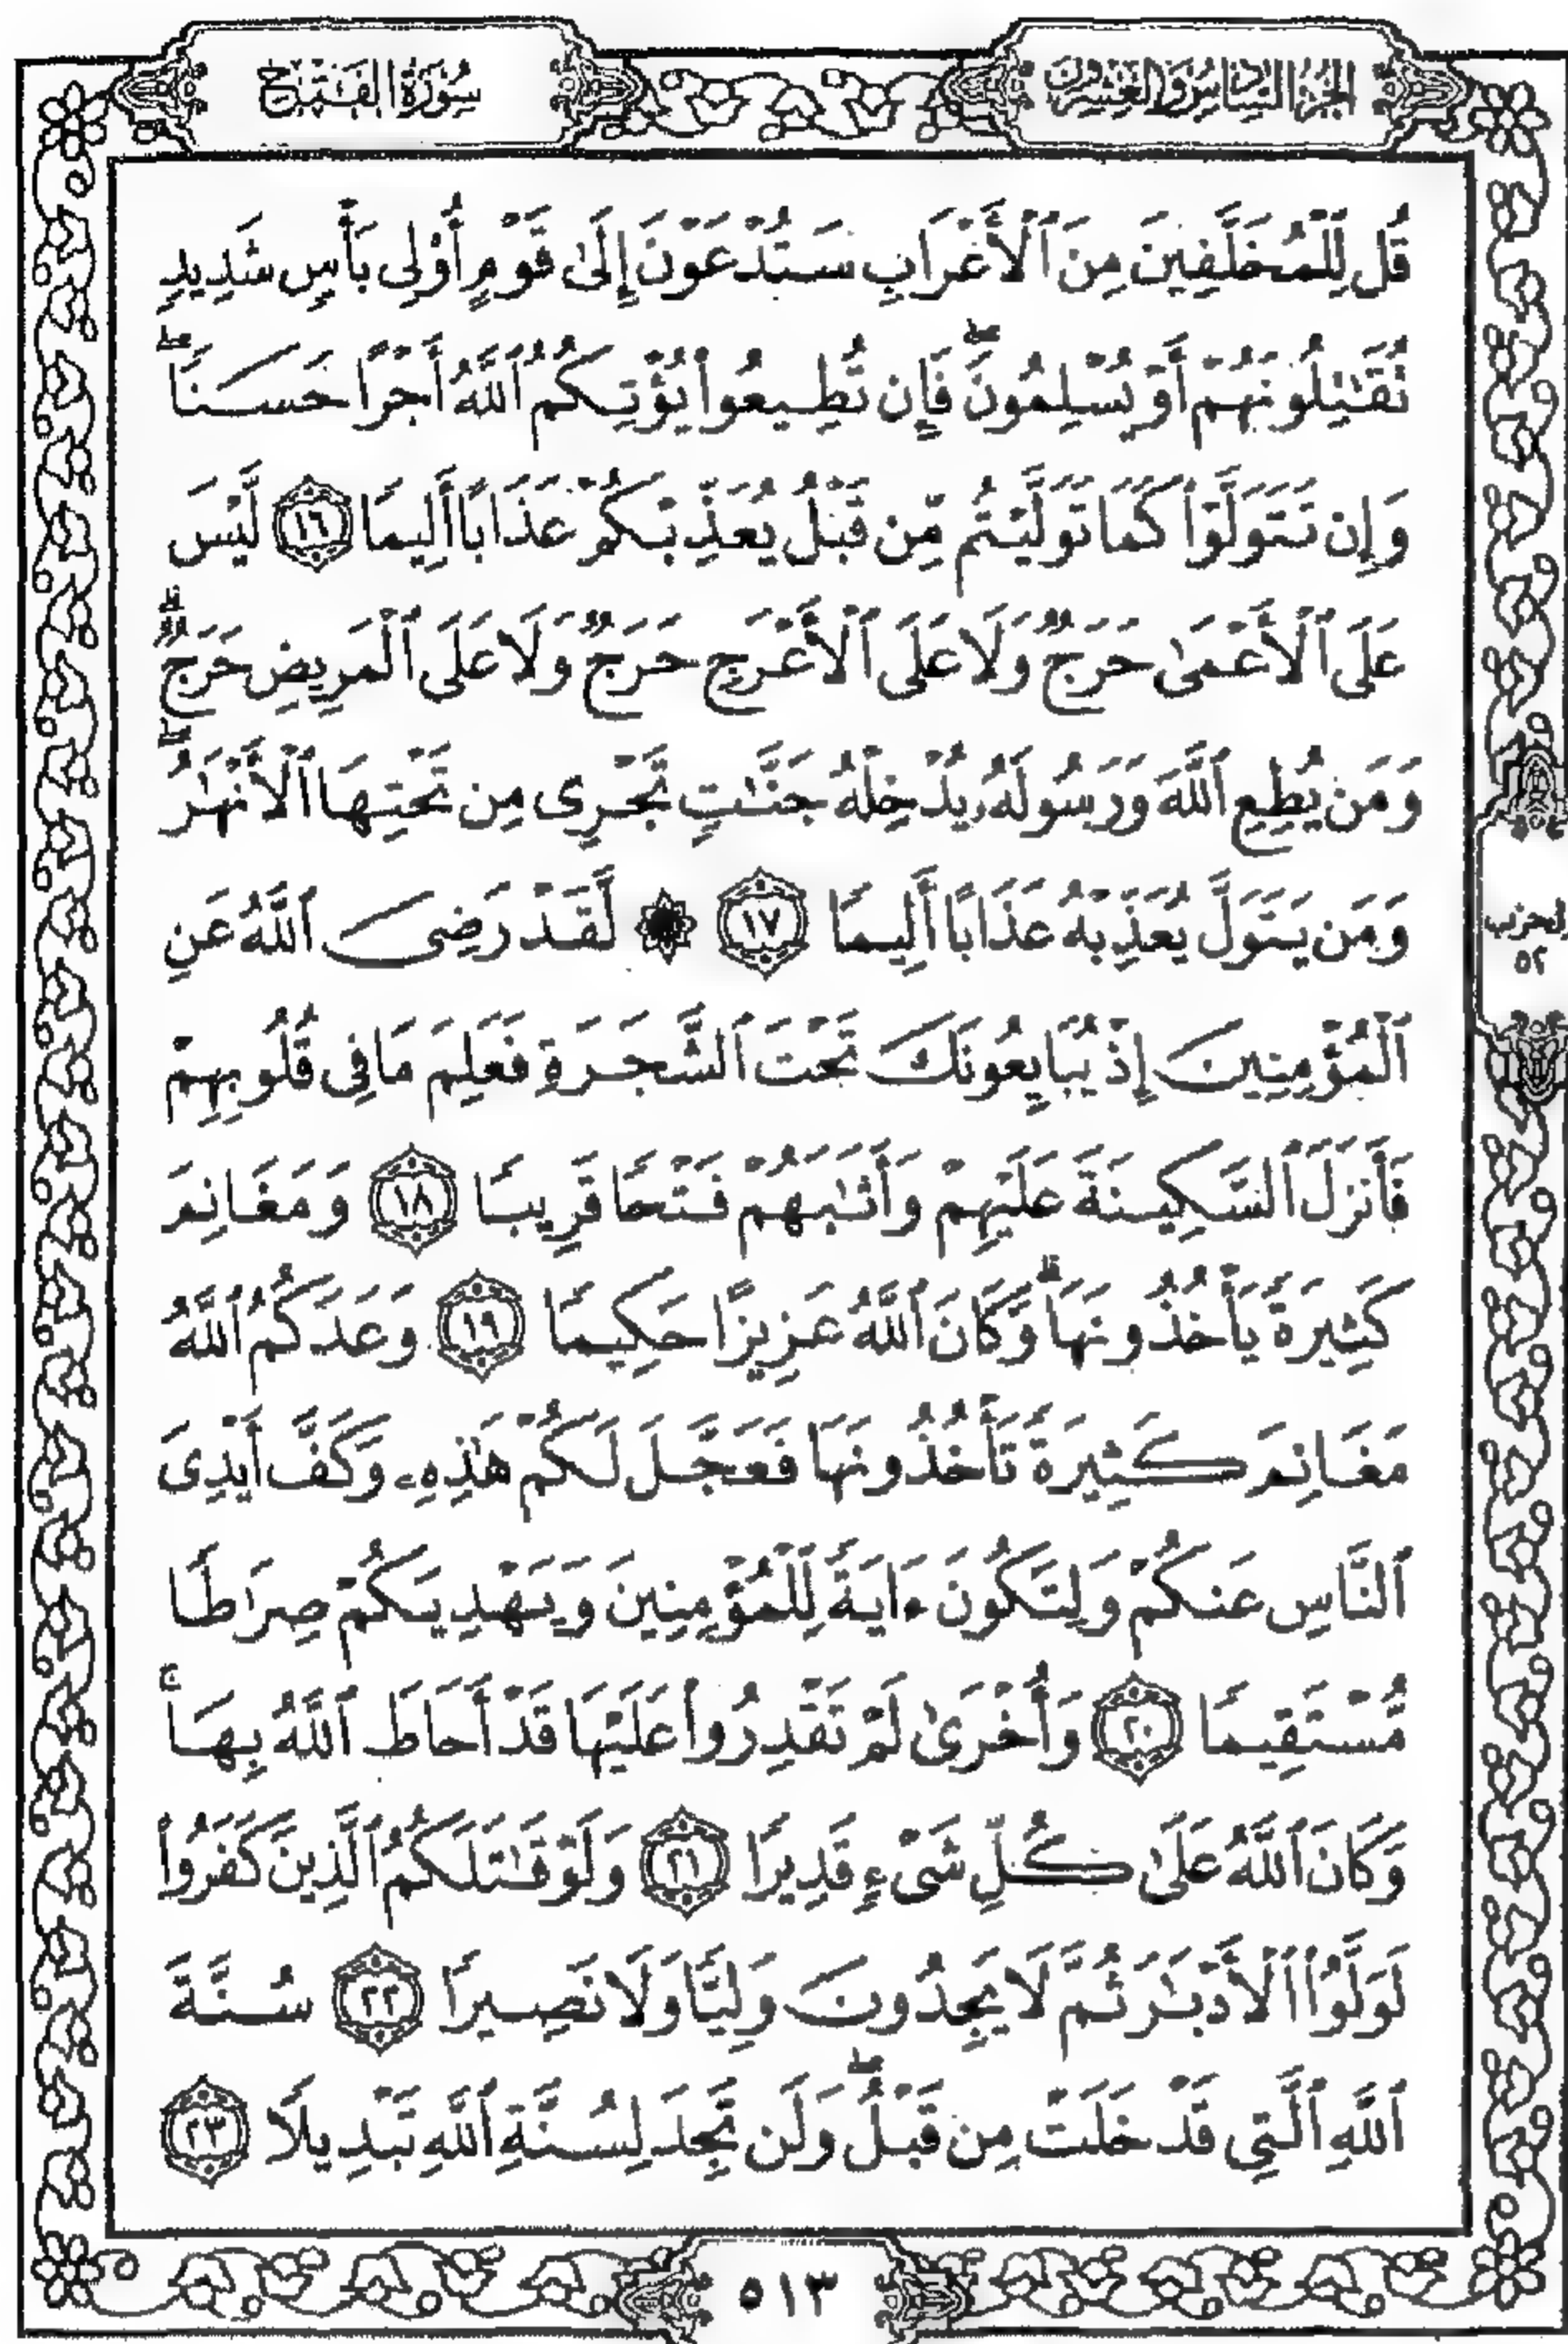 الجزء السادس والعشرون
سورة الفتح
قُل لِّلْمُخَلَّفِينَ مِنَ ٱلْأَعْرَابِ سَتُدْعَوْنَ إِلَىٰ قَوْمٍ أُو۟لِى بَأْسٍ شَدِيدٍ
تُقَٰتِلُونَهُمْ أَوْ يُسْلِمُونَ ۖ فَإِن تُطِيعُوا۟ يُؤْتِكُمُ ٱللَّهُ أَجْرًا حَسَنًا ۖ
وَإِن تَتَوَلَّوْا۟ كَمَا تَوَلَّيْتُم مِّن قَبْلُ يُعَذِّبْكُمْ عَذَابًا أَلِيمًا ١٦ لَّيْسَ
عَلَى ٱلْأَعْمَىٰ حَرَجٌ وَلَا عَلَى ٱلْأَعْرَجِ حَرَجٌ وَلَا عَلَى ٱلْمَرِيضِ حَرَجٌ ۗ
وَمَن يُطِعِ ٱللَّهَ وَرَسُولَهُۥ يُدْخِلْهُ جَنَّٰتٍ تَجْرِى مِن تَحْتِهَا ٱلْأَنْهَٰرُ ۖ
وَمَن يَتَوَلَّ يُعَذِّبْهُ عَذَابًا أَلِيمًا ١٧ ۞ لَّقَدْ رَضِىَ ٱللَّهُ عَنِ
ٱلْمُؤْمِنِينَ إِذْ يُبَايِعُونَكَ تَحْتَ ٱلشَّجَرَةِ فَعَلِمَ مَا فِى قُلُوبِهِمْ
فَأَنزَلَ ٱلسَّكِينَةَ عَلَيْهِمْ وَأَثَٰبَهُمْ فَتْحًا قَرِيبًا ١٨ وَمَغَانِمَ
كَثِيرَةً يَأْخُذُونَهَا ۗ وَكَانَ ٱللَّهُ عَزِيزًا حَكِيمًا ١٩ وَعَدَكُمُ ٱللَّهُ
مَغَانِمَ كَثِيرَةً تَأْخُذُونَهَا فَعَجَّلَ لَكُمْ هَٰذِهِۦ وَكَفَّ أَيْدِىَ
ٱلنَّاسِ عَنكُمْ وَلِتَكُونَ ءَايَةً لِّلْمُؤْمِنِينَ وَيَهْدِيَكُمْ صِرَٰطًا
مُّسْتَقِيمًا ٢٠ وَأُخْرَىٰ لَمْ تَقْدِرُوا۟ عَلَيْهَا قَدْ أَحَاطَ ٱللَّهُ بِهَا ۚ
وَكَانَ ٱللَّهُ عَلَىٰ كُلِّ شَىْءٍ قَدِيرًا ٢١ وَلَوْ قَٰتَلَكُمُ ٱلَّذِينَ كَفَرُوا۟
لَوَلَّوُا۟ ٱلْأَدْبَٰرَ ثُمَّ لَا يَجِدُونَ وَلِيًّا وَلَا نَصِيرًا ٢٢ سُنَّةَ
ٱللَّهِ ٱلَّتِى قَدْ خَلَتْ مِن قَبْلُ ۖ وَلَن تَجِدَ لِسُنَّةِ ٱللَّهِ تَبْدِيلًا ٢٣
الحزب
٥٢
٥١٣